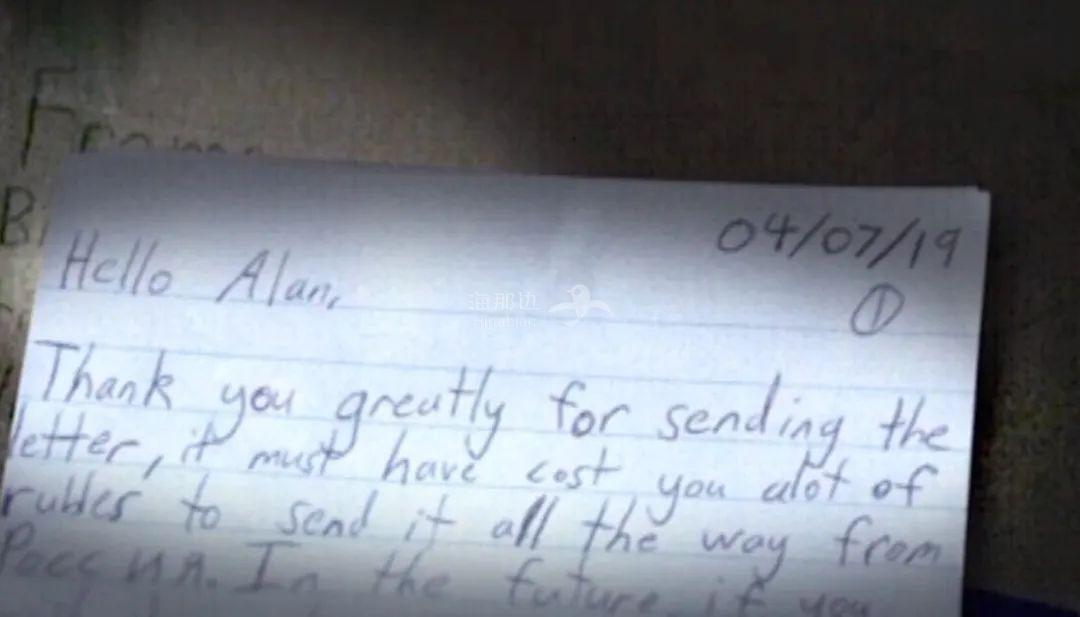 From
B
04/07/19
Hello Alan,
①
海那边
Hinabian
Thank you greatly for sending the
letter, it must have cost you alot of
rubles to send it all the way from
Россия. In the future, if you